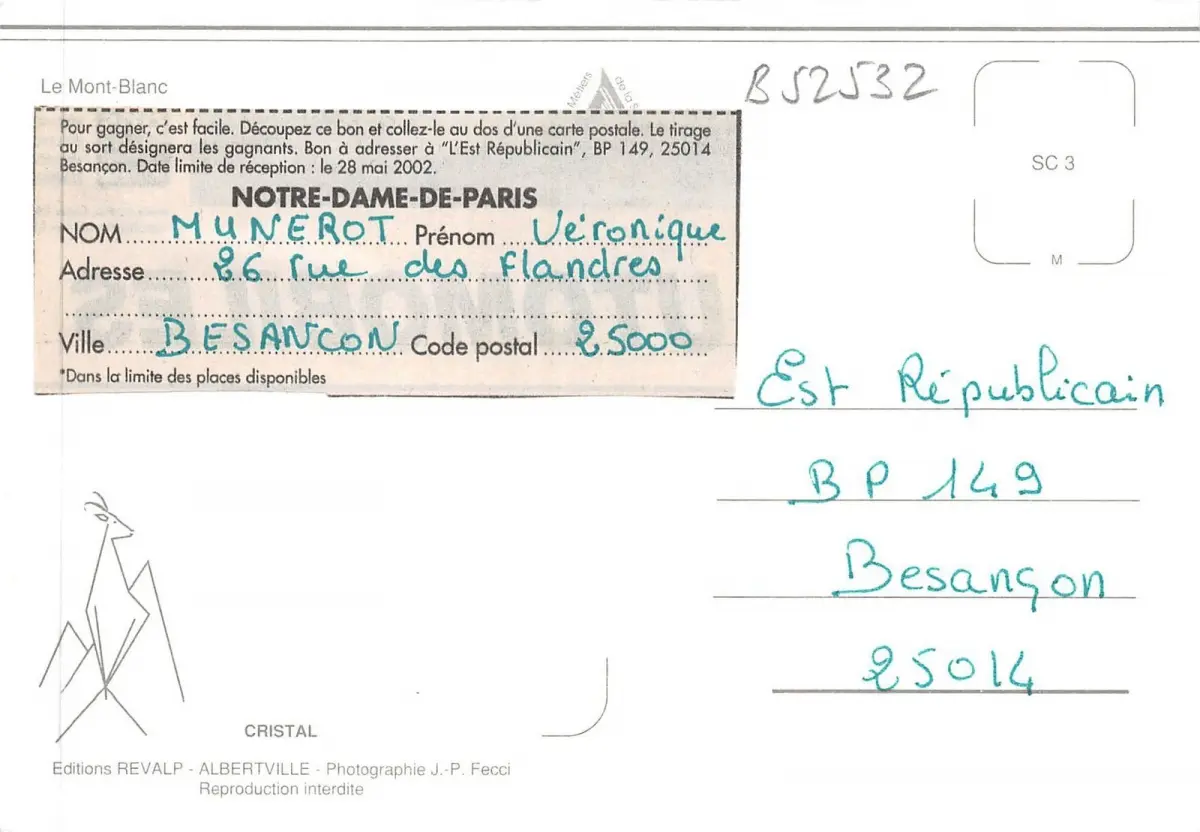 Le Mont-Blanc
Métiers de la
B52532
SC 3
M
Pour gagner, c'est facile. Découpez ce bon et collez-le au dos d'une carte postale. Le tirage
au sort désignera les gagnants. Bon à adresser à "L'Est Républicain", BP 149, 25014
Besançon. Date limite de réception : le 28 mai 2002.
NOTRE-DAME-DE-PARIS
NOM..... MUNEROT Prénom .... Véronique
Adresse........ 26 rue des Flandres
Ville....... BESANCON Code postal .... 25000
*Dans la limite des places disponibles
Est Républicain
BP 149
Besançon
25014
CRISTAL
Editions REVALP - ALBERTVILLE - Photographie J.-P. Fecci
Reproduction interdite